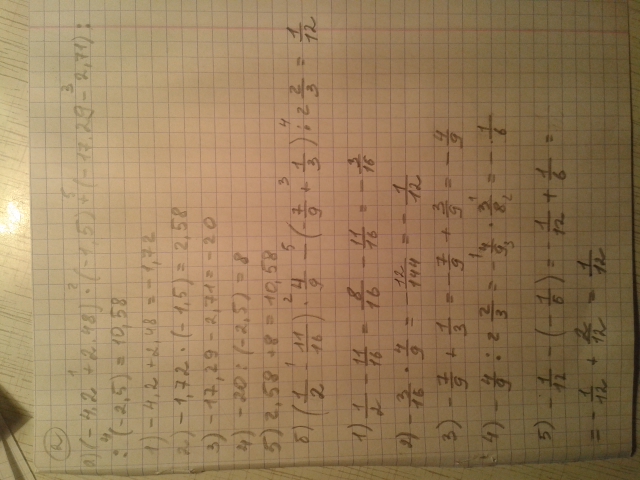 а) (-4,2 + 2,48) · (-1,5) + (-17,29 - 2,71) :
: (-2,5) = 10,58
1) -4,2 + 2,48 = -1,72
2) -1,72 · (-1,5) = 2,58
3) -17,29 - 2,71 = -20
4) -20 : (-2,5) = 8
5) 2,58 + 8 = 10,58
б) (1/2 - 11/16) · 4/9 - (-7/9 + 1/3) : 2 2/3 = 1/12
1) 1/2 - 11/16 = 8/16 - 11/16 = -3/16
2) -3/16 · 4/9 = -12/144 = -1/12
3) -7/9 + 1/3 = -7/9 + 3/9 = -4/9
4) -4/9 : 2 2/3 = -4/9 · 3/8 = -1/6
5) -1/12 - (-1/6) = -1/12 + 1/6 =
= -1/12 + 2/12 = 1/12